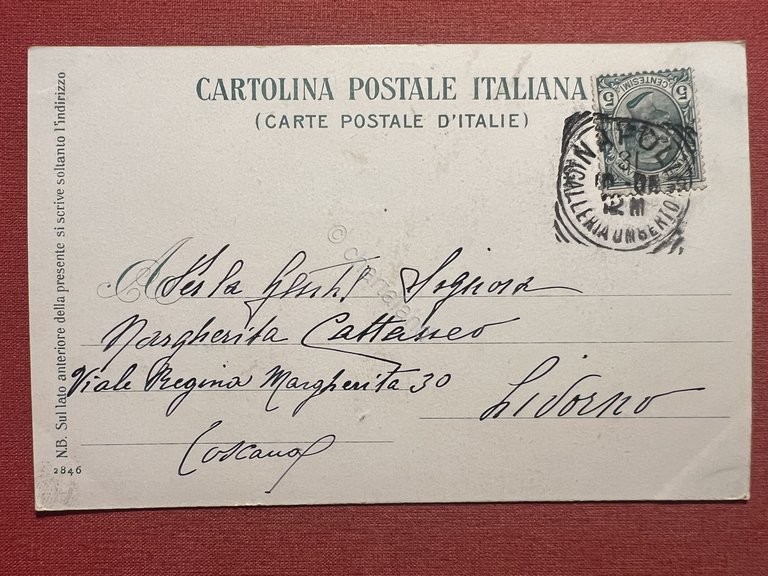 CARTOLINA POSTALE ITALIANA
(CARTE POSTALE D'ITALIE)
CENTESIMI
5 5
NAPOLI
GALLERIA UMBERTO
12 M
A
Gentl Signora
Margherita Cattaneo
Viale Regina Margherita 30
Livorno
Toscana
N.B. Sul lato anteriore della presente si scrive soltanto l'indirizzo
2846